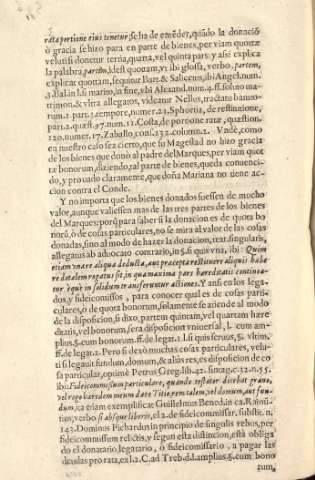 rata portione eius tenetur, se ha de entéder, quãdo la donació
ò gracia se hizo para en parte de bienes, per viam quotæ
velut si donetur tertia, quarta, vel quinta pars: y assi explica
la palabra, partem, idest quotam, vt ibi glossa, verbo, partem,
explicat quotam, sequitur Bart. & Salicetus, ibi Angel. num.
trimon. & vltra allegatos, videatur Nellus, tractatu banno-
rum 2. pars 2. tempore, numer. 21. Sphortia, de restitutione,
part. 2. quæst. 97. num. 11. Costa, de portione ratæ, quæstion.
120. numer. 17. Zaballo, cons. 132. column. 2. Vnde, como
en nuestro caso sea cierto, que su Magestad no hizo gracia
de los bienes que donò al padre del Marques, per viam quo-
tæ bonorum, diziendo, tal parte de bienes, queda conuenci-
do, y prouado claramente, que doña Mariana no tiene ac-
cion contra el Conde.
Y no importa que los bienes donados fuessen de mucho
valor, aunque valiessen mas de las tres partes de los bienes
del Marques: porq̃ para saber si la donacion es de quota bo
norũ, ò de cosas particulares, no se mira al valor de las cosas
donadas, sino al modo de hazer la donacion, text. singularis,
allegatus ab aduocato contrario, in §. si quis vna, ibi: Quin
etiam vna re aliqua deducta, aut præcepta retinere aliquis hære-
ditatem rogatus sit, in qua maxima pars hæreditatis continea-
tur æquè in solidum transferuntur actiones. Y ansi en los lega-
dos, y fideicomissos, para conocer qual es de cosas parti-
culares, ò de quota bonorum, solamente se atiende al modo
de la disposicion, si dixo, partem quintam, vel quartam hære
ditatis, vel bonorum, sera disposicion vniuersal, l. cum am-
plius, §. cum bonorum. ff. de legat. 1. l. si quis seruus, §. vltim.
ff. de legat. 2. Pero si dexò muchas cosas particulares, velu-
ti si legauit fundum, domum, & alias res, es disposicion de co
sa particular, optimè Petrus Greg. lib. 42. sintag. c. 32. n. 55.
ibi: Fideicommissum particulare, quando testator dicebat grauo,
vel rogo hæredem meum dare Titio, rem talem, vel domum, aut fun-
dum, ca etiam exemplificat Guillelmus Bened. in ca. Rainu-
tius, verbo si absque liberis, el 2. de fideicommissar. substit. n.
143. Dominus Pichardus in principio de singulis rebus, per
fideicommissum relictis, y segun esta distincion, està obliga
do el donatario, legatario, ò fideicommissario, a pagar las
deudas pro rata, ex l. 2. C. ad Treb. dd. amplius §. cum bono
rum,